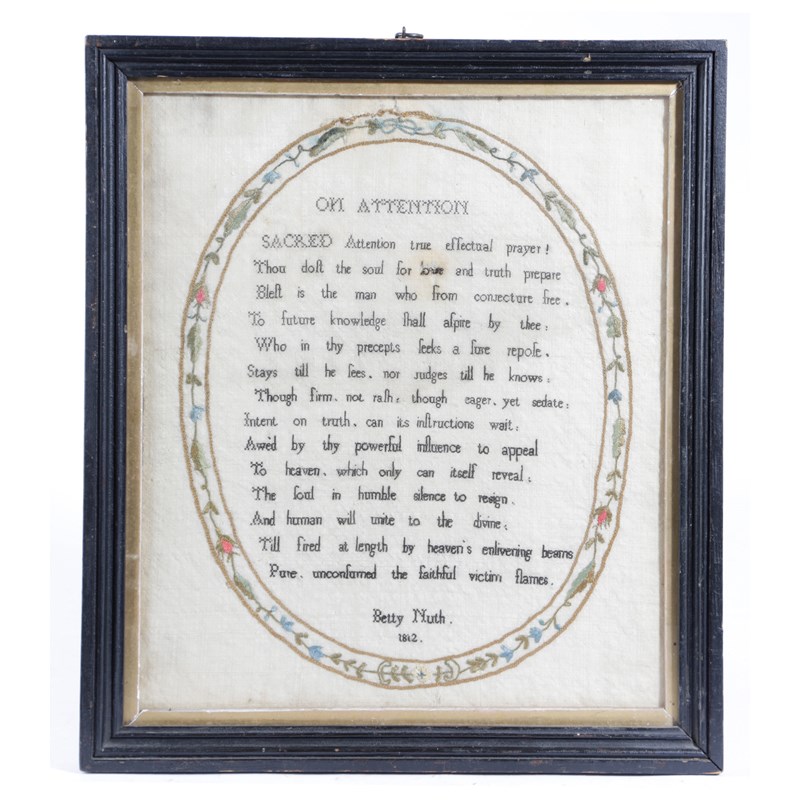 ON ATTENTION
SACRED Attention true effectual prayer!
Thou doſt the soul for love and truth prepare
Bleſt is the man who from conjecture free.
To future knowledge ſhall aſpire by thee:
Who in thy precepts ſeeks a ſure repoſe.
Stays till he ſees. nor judges till he knows:
Though firm. not raſh: though eager. yet sedate:
Intent on truth. can its inſtructions wait:
Awed by thy powerful influence to appeal
To heaven. which only can itself reveal:
The ſoul in humble silence to resign.
And human will unite to the divine:
Till fired at length by heaven's enlivening beams
Pure. unconſumed the faithful victim flames.
Betty Nuth.
1812.